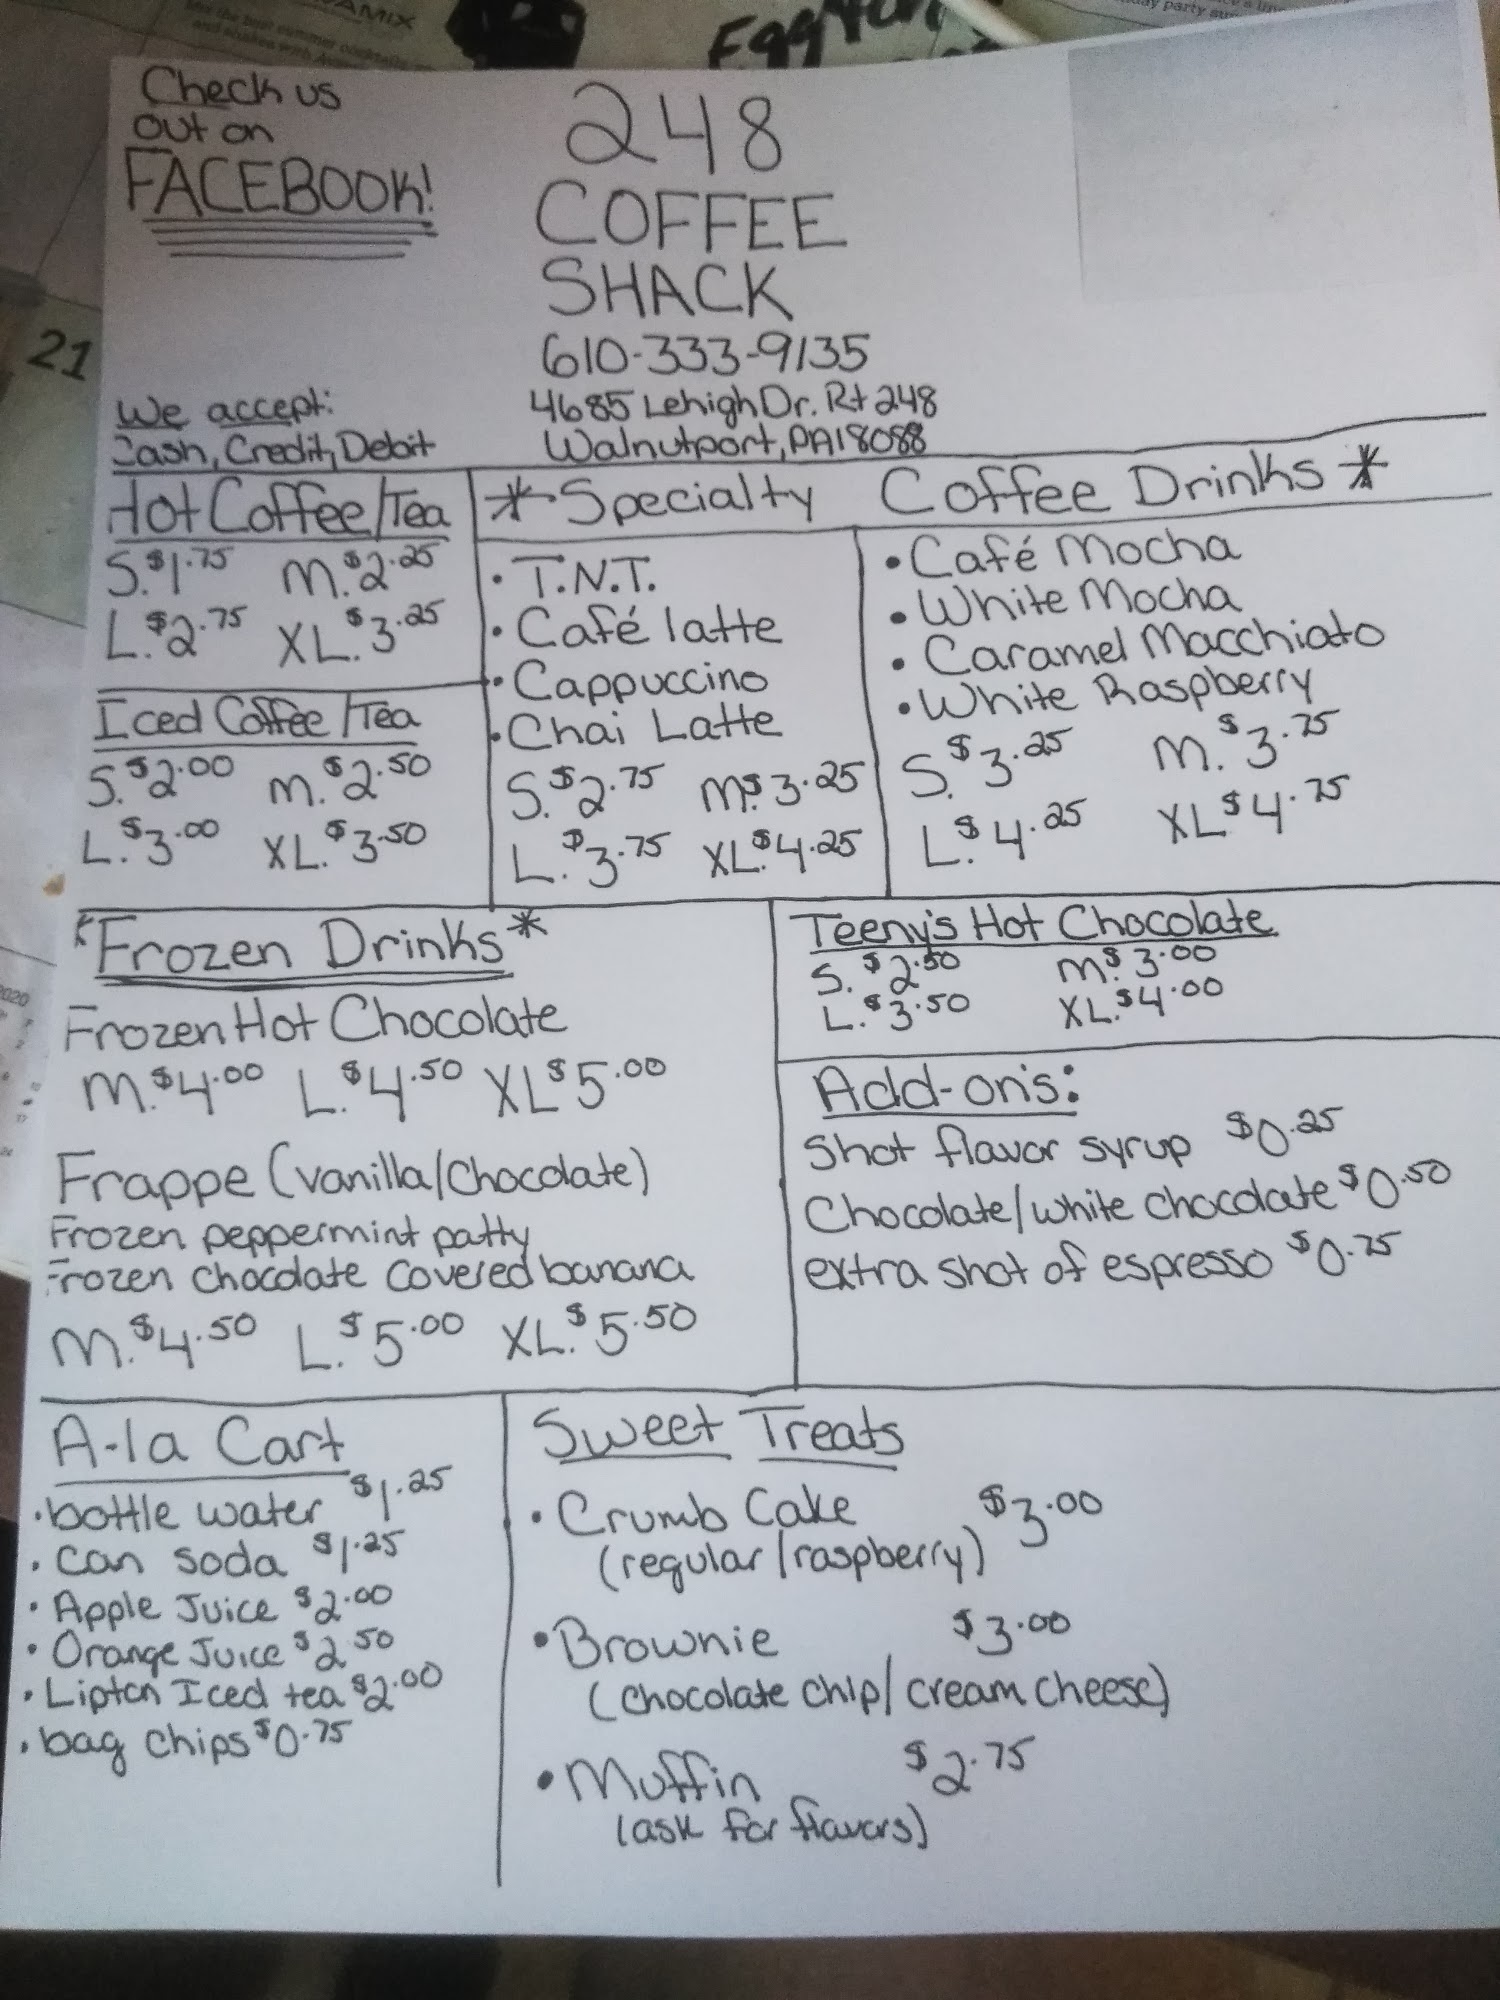 AMIX
Mix the best summer cocktails
and shakes with
Egg
day party
Check us
out on
FACEBOOK!
248
COFFEE
SHACK
610-333-9135
4685 Lehigh Dr. Rt 248
Walnutport, PA 18088
21
We accept:
Cash, Credit, Debit
Hot Coffee/Tea
S. $1.75 M. $2.25
L. $2.75 XL. $3.25
Iced Coffee/Tea
S. $2.00 M. $2.50
L. $3.00 XL. $3.50
*Specialty Coffee Drinks*
• T.N.T.
• Café latte
• Cappuccino
• Chai Latte
S. $2.75 M. $3.25
L. $3.75 XL. $4.25
• Café Mocha
• White Mocha
• Caramel Macchiato
• White Raspberry
S. $3.25 M. $3.75
L. $4.25 XL $4.75
*Frozen Drinks*
Frozen Hot Chocolate
M. $4.00 L. $4.50 XL $5.00
Frappe (vanilla/chocolate)
Frozen peppermint patty
Frozen chocolate covered banana
M. $4.50 L. $5.00 XL. $5.50
Teeny's Hot Chocolate
S. $2.50 M. $3.00
L. $3.50 XL. $4.00
Add-on's:
Shot flavor syrup $0.25
Chocolate/white chocolate $0.50
extra shot of espresso $0.75
2020
A-la Cart
• bottle water $1.25
• can soda $1.25
• Apple Juice $2.00
• Orange Juice $2.50
• Lipton Iced tea $2.00
• bag chips $0.75
Sweet Treats
• Crumb Cake $3.00
(regular/raspberry)
• Brownie $3.00
(chocolate chip/cream cheese)
• Muffin $2.75
(ask for flavors)